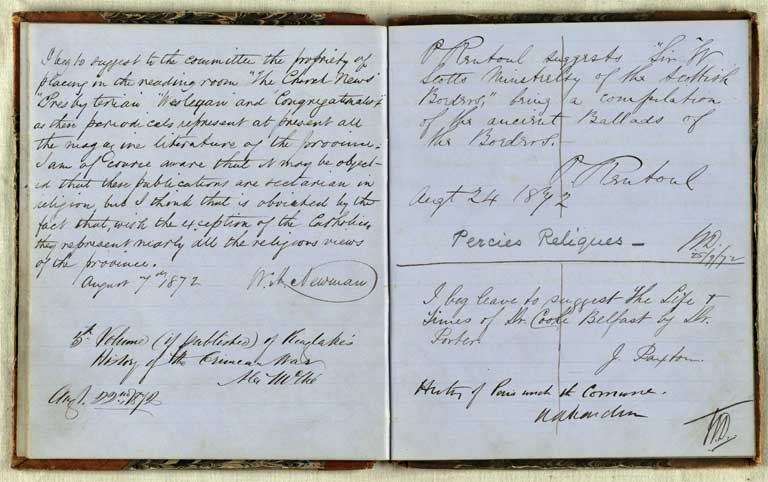 I beg to suggest to the committee the propriety of
placing in the reading room "The Church News"
"Presbyterian" "Wesleyan and Congregationalist"
as these periodicals represent at present all
the magazine literature of the province.
I am of course aware that it may be object-
ed that these publications are sectarian in
religion, but I think that is obviated by the
fact that, with the exception of the Catholics,
they represent nearly all the religious views
of the province.
August 7th, 1872 W. A. Newman
5th Volume (if published) of Kinglake's
History of the Crimean War
Augt. 22nd, 1872
P Rentoul suggests "Sir W
Scotts Minstrelsy of the Scottish
Borders," being a compilation
of the ancient Ballads of
the Borders.
P Rentoul
Augt 24 1872
Percies Reliques —
I beg leave to suggest the Life &
Times of Dr. Cooke Belfast by Dr.
Porter.
J. Paxton.
of Paris under the Comune.